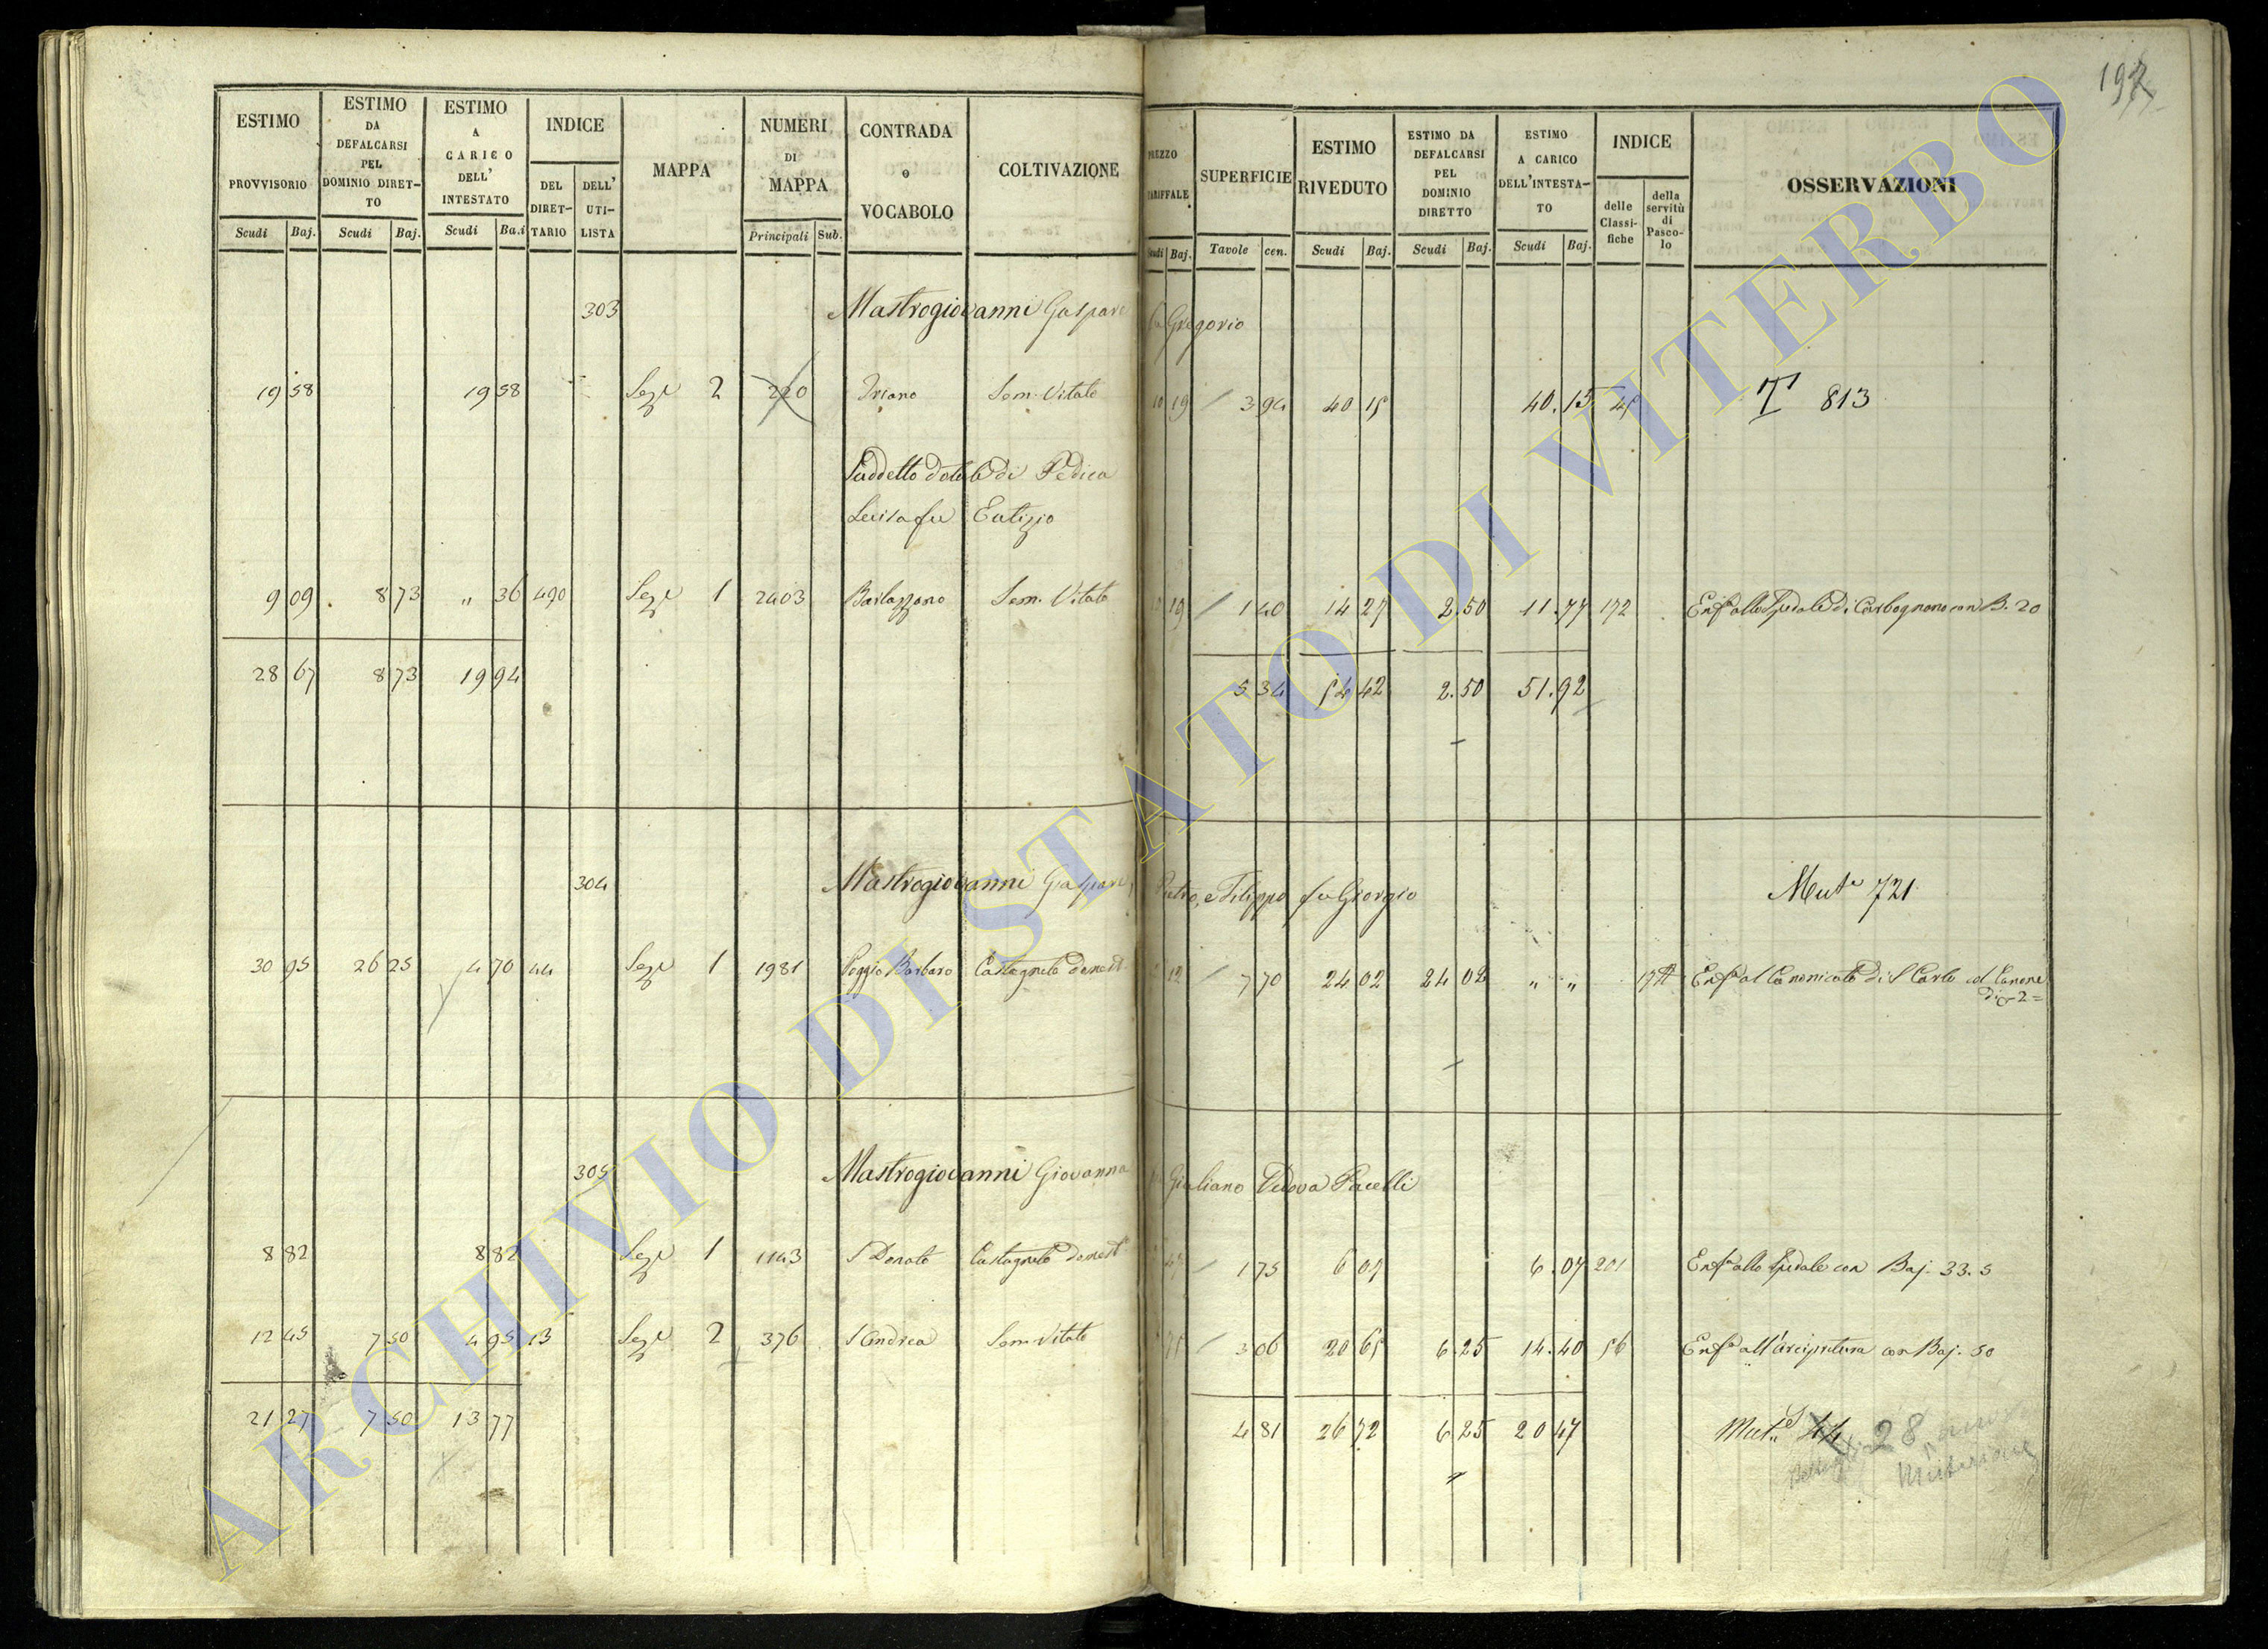 197
ESTIMO PROVVISORIO
ESTIMO DA DEFALCARSI PEL DOMINIO DIRET-TO
ESTIMO A CARICO DELL' INTESTATO
INDICE
DEL DIRET-TARIO
DELL' UTI-LISTA
MAPPA
NUMERI DI MAPPA
CONTRADA o VOCABOLO
COLTIVAZIONE
PREZZO TARIFFALE
SUPERFICIE
ESTIMO RIVEDUTO
ESTIMO DA DEFALCARSI PEL DOMINIO DIRETTO
ESTIMO A CARICO DELL'INTESTA-TO
INDICE
delle Classi-fiche
della servitù di Pasco-lo
OSSERVAZIONI
Scudi Baj. Scudi Baj. Scudi Ba.i Principali Sub. Scudi Baj. Tavole cen. Scudi Baj. Scudi Baj. Scudi Baj.
303 Mastrogiovanni Gaspare fu Gregorio
19 58 19 58 Sez.e 2 220 Sem. Vitato 10 19 3 94 40 15 40.15 45 813
Suddetto Dotale di Pedica
Luisa fu Eutizio
9 09 8 73 " 36 490 Sez.e 1 2403 Barlazzano Sem. Vitato 10 19 1 40 14 27 2.50 11.77 172 Enf.a allo Spedale di Carbognano con B. 20
28 67 8 73 19 94 5 34 54 42 2.50 51.92
304 Mastrogiovanni Gaspare, Pietro, e Filippo fu Giorgio Mut.e 721
30 95 26 25 4 70 44 Sez.e 1 1981 Poggio Barbaro Castagneto domest. 12 7 70 24 02 24 02 " " Enf.a al Canonicato di S Carlo col Canone
di 2=
305 Mastrogiovanni Giovanna fu Giuliano Vedova Pacelli
8 82 8 82 Sez.e 1 1143 S Donato Castagneto domest. 47 1 75 6 07 6.07 201 Enf.a allo Spedale con Baj. 33.5
12 45 7 50 4 95 13 Sez.e 2 376 S Andrea Sem. Vitato 75 3 06 20 65 6.25 14.40 56 Enf.a all'Arcipretura con Baj. 50
21 27 7 50 13 77 4 81 26 72 6 25 20 47 Mut.e 44 28
ARCHIVIO DI STATO DI VITERBO